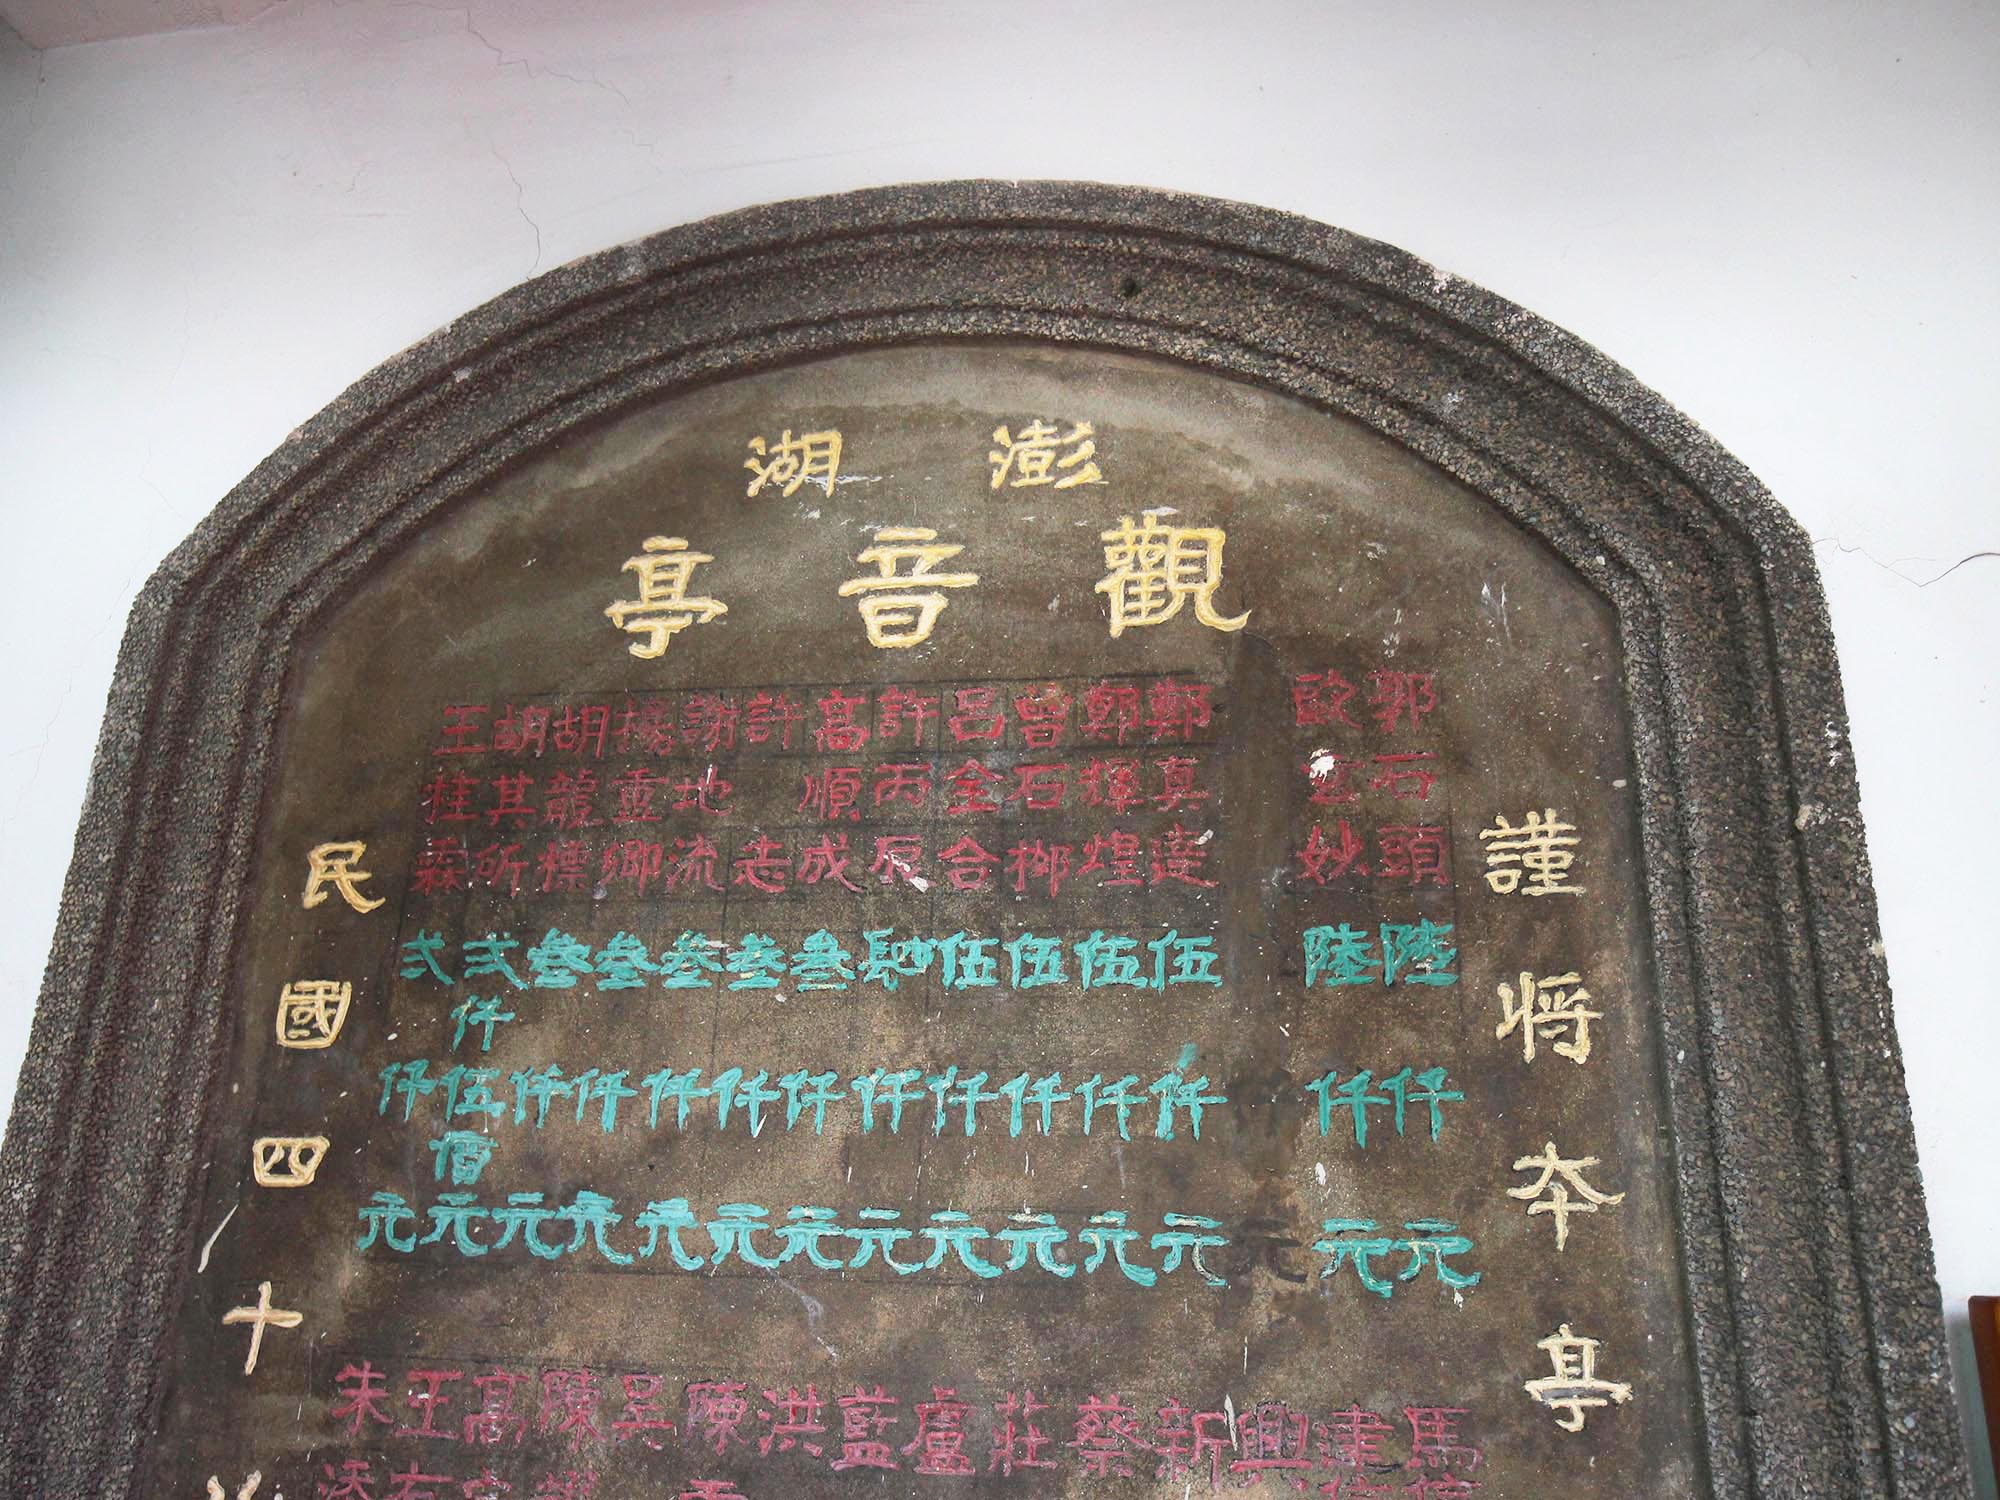 澎湖
觀音亭
謹將本亭
郭石頭陸仟元
歐玄妙陸仟元
鄭真達伍仟元
鄭輝煌伍仟元
曾石榔伍仟元
呂全合伍仟元
許丙辰肆仟元
高順成叁仟元
許志叁仟元
謝地流叁仟元
楊靈卿叁仟元
胡龍標叁仟元
胡其所弍仟伍佰元
王桂霖弍仟元
馬
建
興
新
蔡
莊
盧
藍
洪
陳
呈
陳
高
王
朱
民國四十